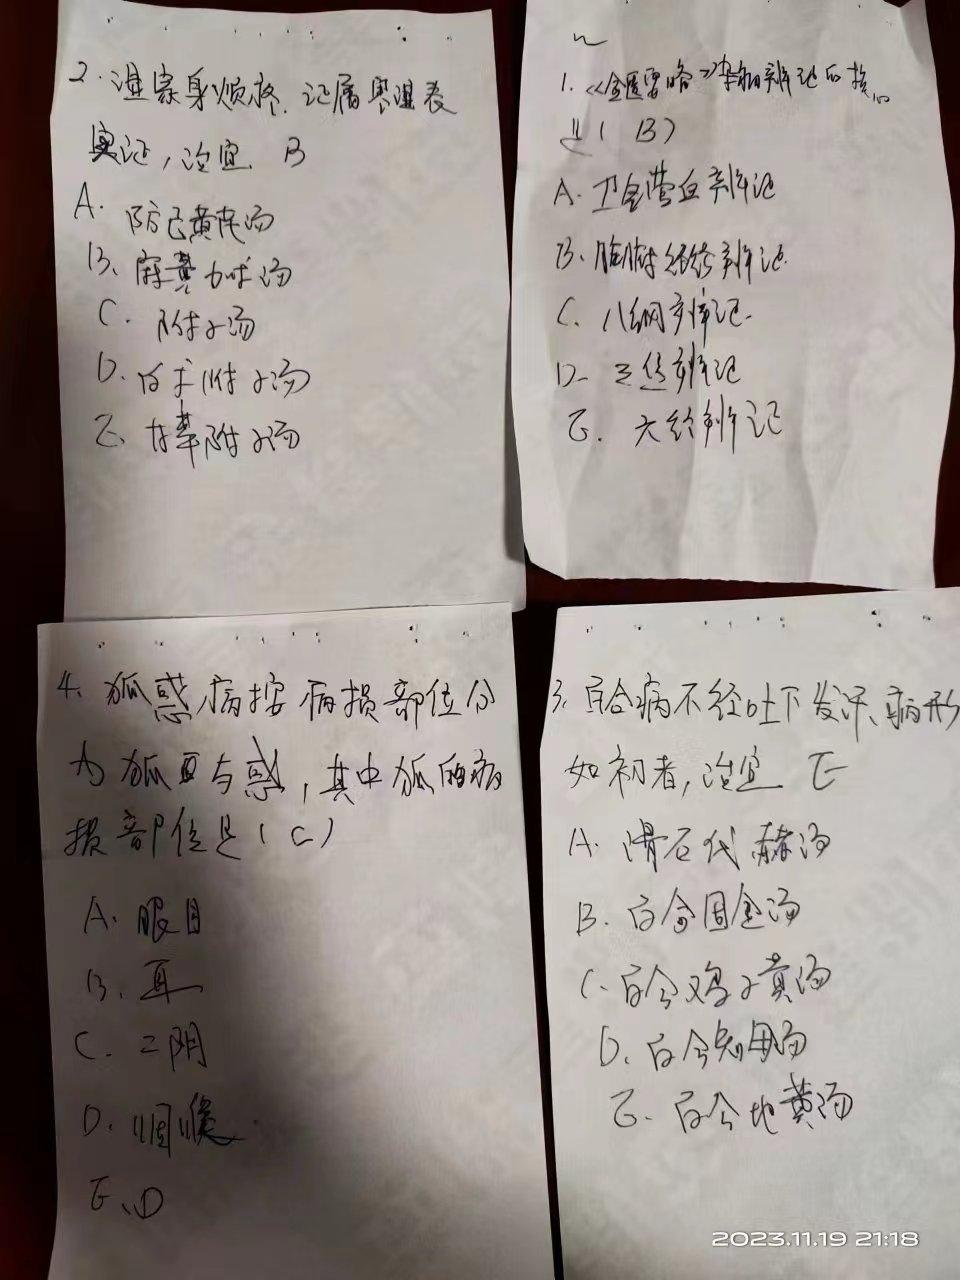 2. 湿家身烦疼, 证属寒湿表
实证, 治宜 B
A. 防己黄芪汤
B. 麻黄加术汤
C. 附子汤
D. 白术附子汤
E. 甘草附子汤
1. 《金匮要略》杂病辨证的核心
是( B)
A. 卫气营血辨证
B. 脏腑经络辨证
C. 八纲辨证
D. 三焦辨证
E. 六经辨证
4. 狐惑病按病损部位分
为狐 与惑, 其中狐的病
损部位是(C)
A. 眼目
B. 耳
C. 二阴
D. 咽喉
E. 口
3. 百合病不经吐下发汗、病形
如初者, 治宜 E
A. 滑石代赭汤
B. 百合固金汤
C. 百合鸡子黄汤
D. 百合知母汤
E. 百合地黄汤
2023.11.19 21:18